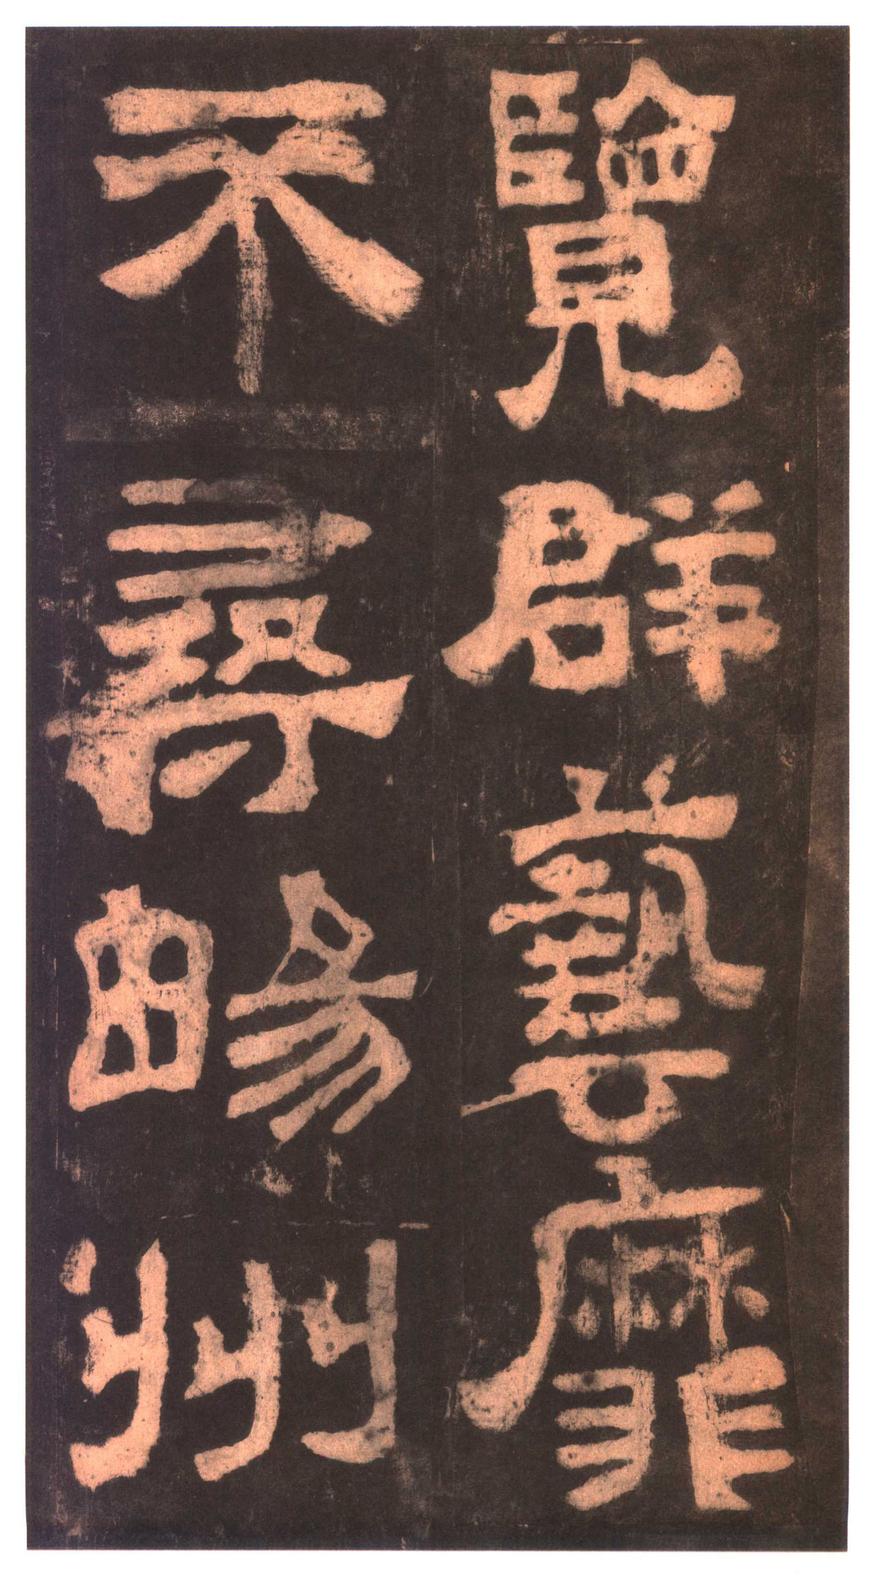 覽群藝靡
不尋暢州